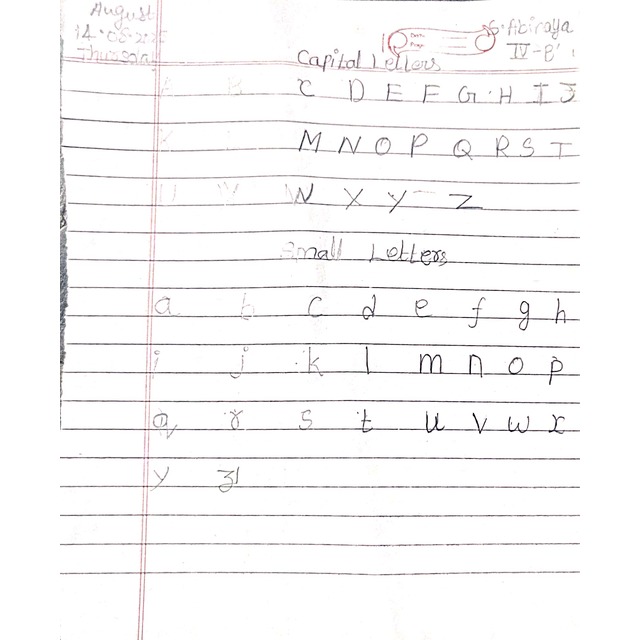 August
14.08.2025
Thursday
S. Abiraya
IV-B
Capital Letters
A B C D E F G H I J
K L M N O P Q R S T
U V W X Y Z
Small Letters
a b c d e f g h
i j k l m n o p
q r s t u v w x
y z